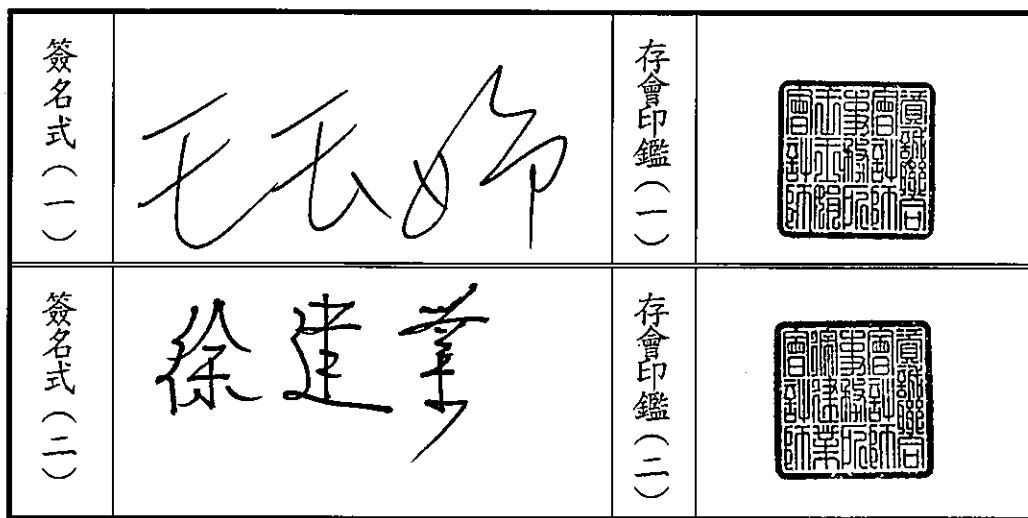 簽名式(一)
王玉娟
存會印鑑(一)
資誠聯合
會計師
事務所
王玉娟
會計師
簽名式(二)
徐建業
存會印鑑(二)
資誠聯合
會計師
事務所
徐建業
會計師